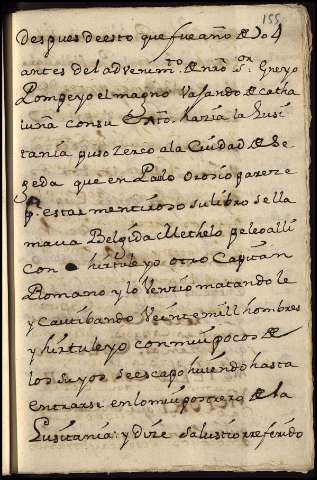 155
despues de esto que fue año de 704
antes del advenim.to de nr̃o s.or Gneyo
Pompeyo el magno vajando de catha
luña con su Ex.to hazia la Lusi
tania puso zerco a la Ciudad de Se
geda que en Paulo Orosio pareze
p.r estar mentiroso su libro se lla
mava Belgida Methelo peleo alli
con hirtuleyo otro Capitan
Romano y lo venzio matandole
y cautibando veinte mill hombres
y hirtuleyo con mui pocos de
los suyos se escapo huiendo hasta
entrarse en lo mui postrero de la
Lusitania: y dize salustio referido